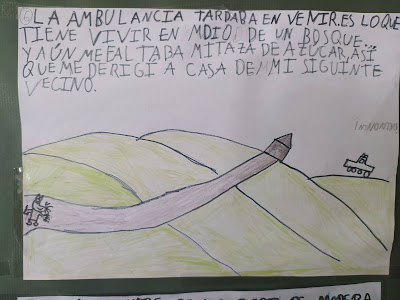 LA AMBULANCIA TARDABA EN VENIR. ES LO QUE
TIENE VIVIR EN MDIO DE UN BOSQUE...
Y AÚN ME FALTABA MI TAZA DE AZUCAR, ASÍ
QUE ME DERIGÍ A CASA DE MI SIGUINTE
VECINO.